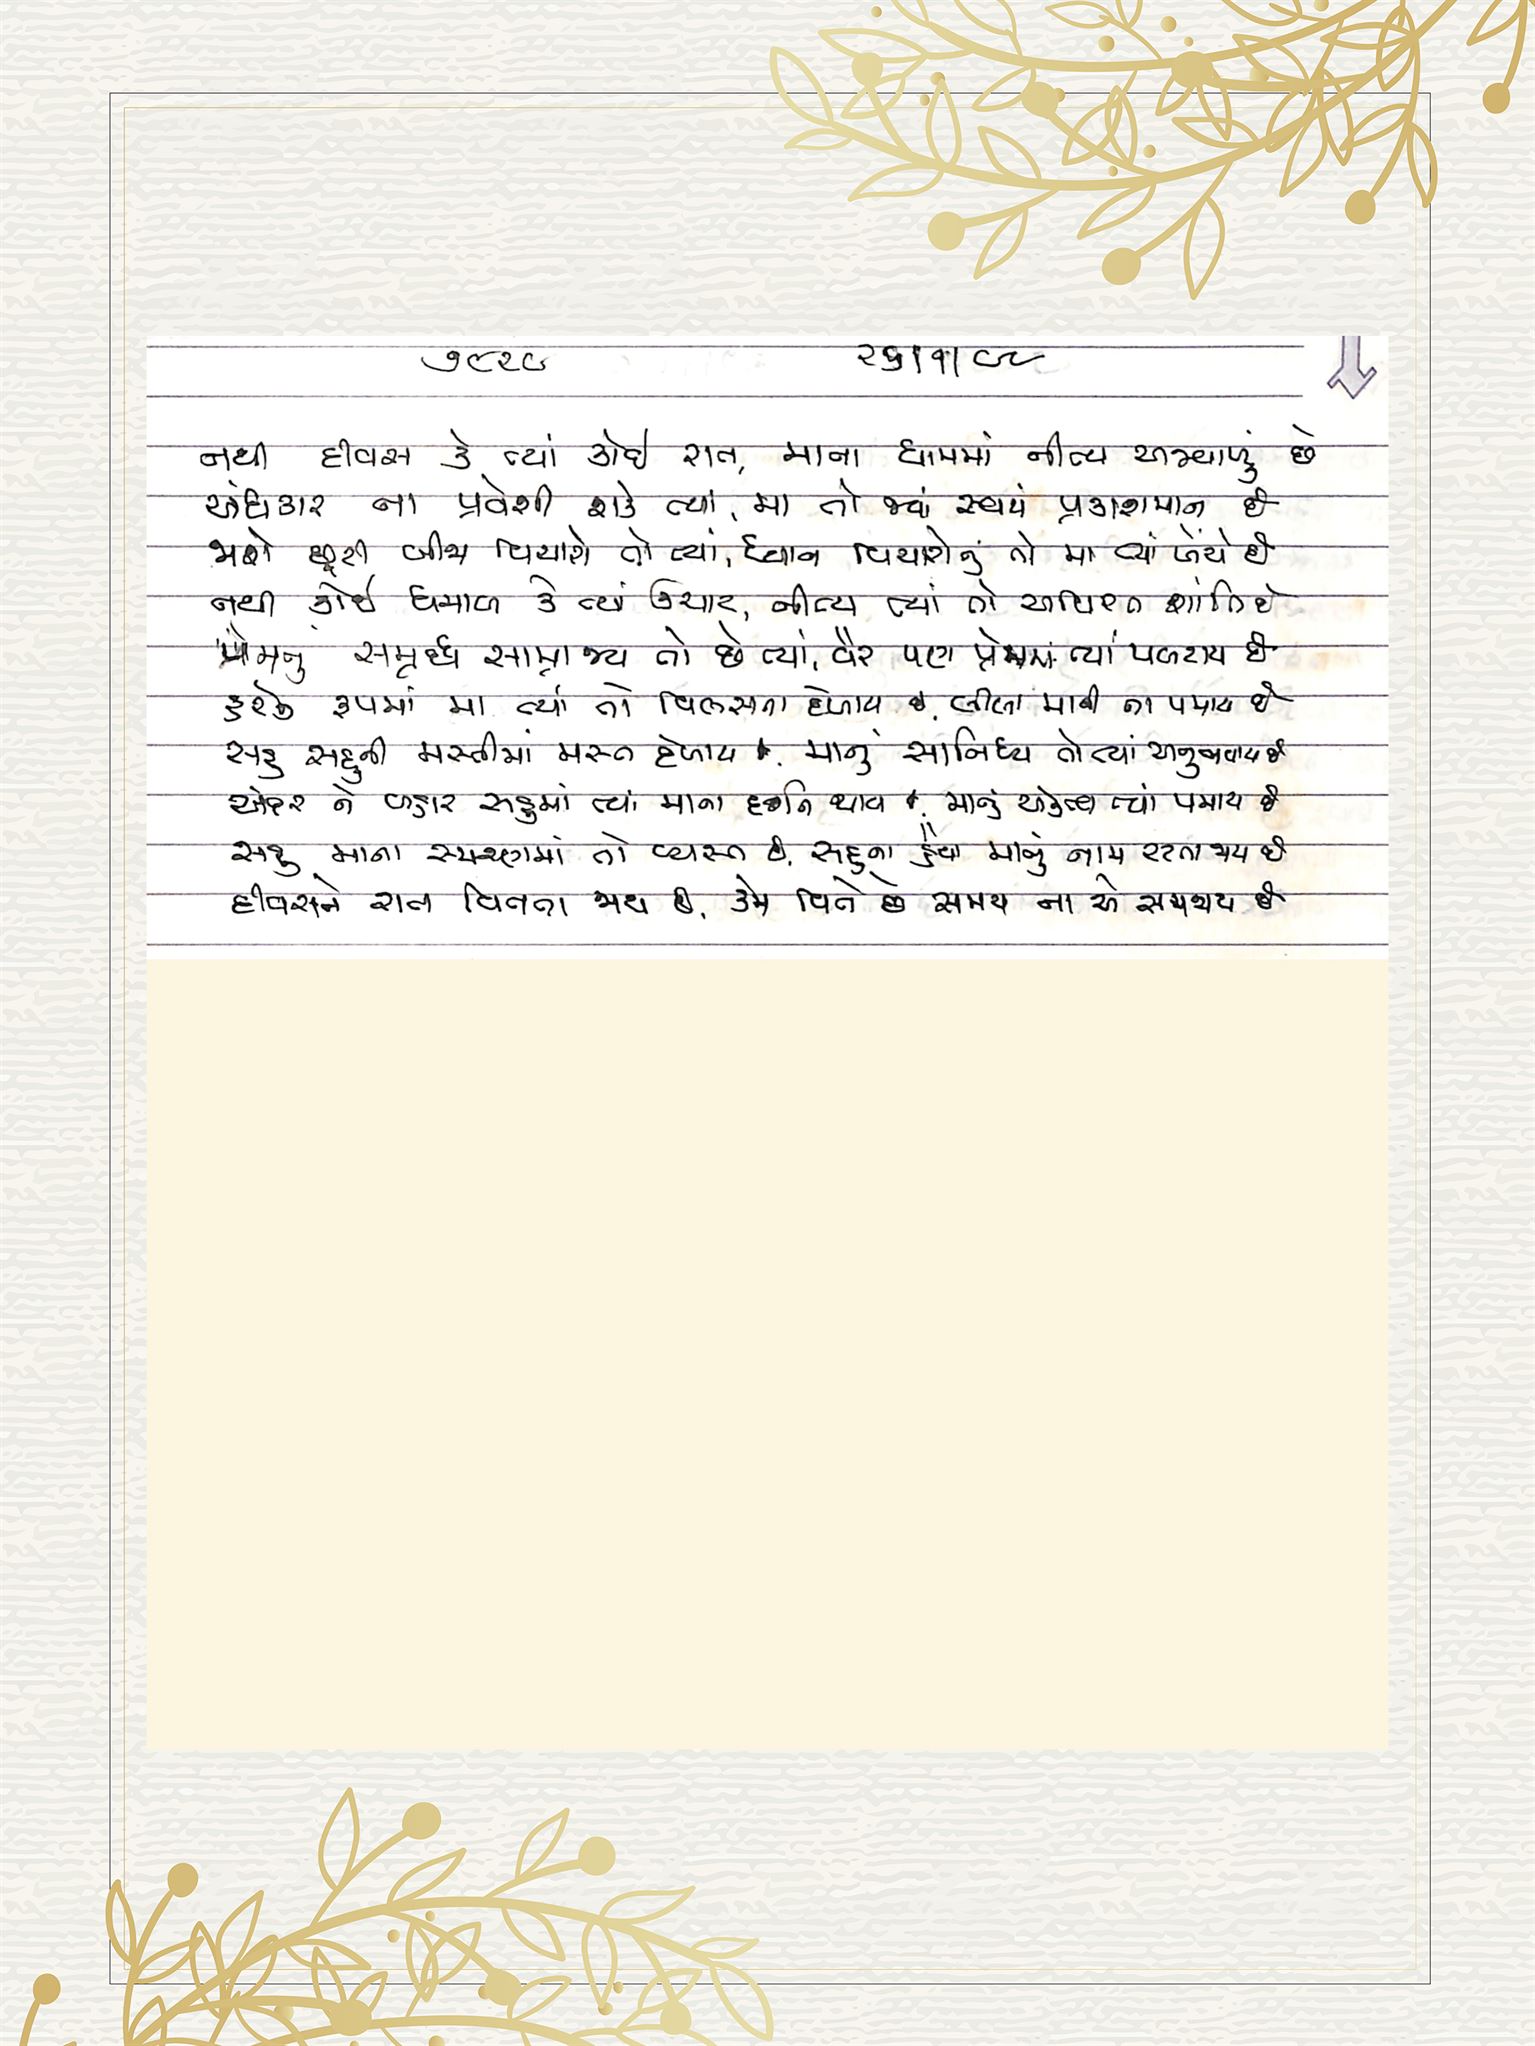 ૭૯૨૯ ૨૬/૧/૯૮
નથી દીવસ કે ત્યાં કોઈ રાત, માના ધામમાં નીત્ય અજવાળું છે
અંધકાર ના પ્રવેશી શકે ત્યાં, મા તો જ્યાં સ્વયં પ્રકાશમાન છે
જાશે છૂટી બીજા વિચારો તો ત્યાં, ધ્યાન વિચારોનું તો મા ત્યાં ખેંચે છે
નથી કોઈ ધમાલ કે ત્યાં ઉચાટ, નીત્ય ત્યાં તો અવિરત શાંતિ છે
પ્રેમનું સમૃધ્ધ સામ્રાજ્ય તો છે ત્યાં, વૈર પણ પ્રેમમાં ત્યાં પલટાય છે
હરએક રૂપમાં મા ત્યાં તો વિલસતા દેખાય છે, લીલા માની ના પમાય છે
સહુ સહુની મસ્તીમાં મસ્ત દેખાય છે, માનું સાનિધ્ય તો ત્યાં અનુભવાય છે
અંદર ને બહાર સહુમાં ત્યાં માના દર્શન થાય છે, માનું એકત્વ ત્યાં પમાય છે
સહુ માના સ્મરણમાં તો વ્યસ્ત છે, સહુના હૈયા માનું નામ રટતા જાય છે
દીવસને રાત વિતતા જાય છે, કેમ વિતે છે સમય ના એ સમજાય છે